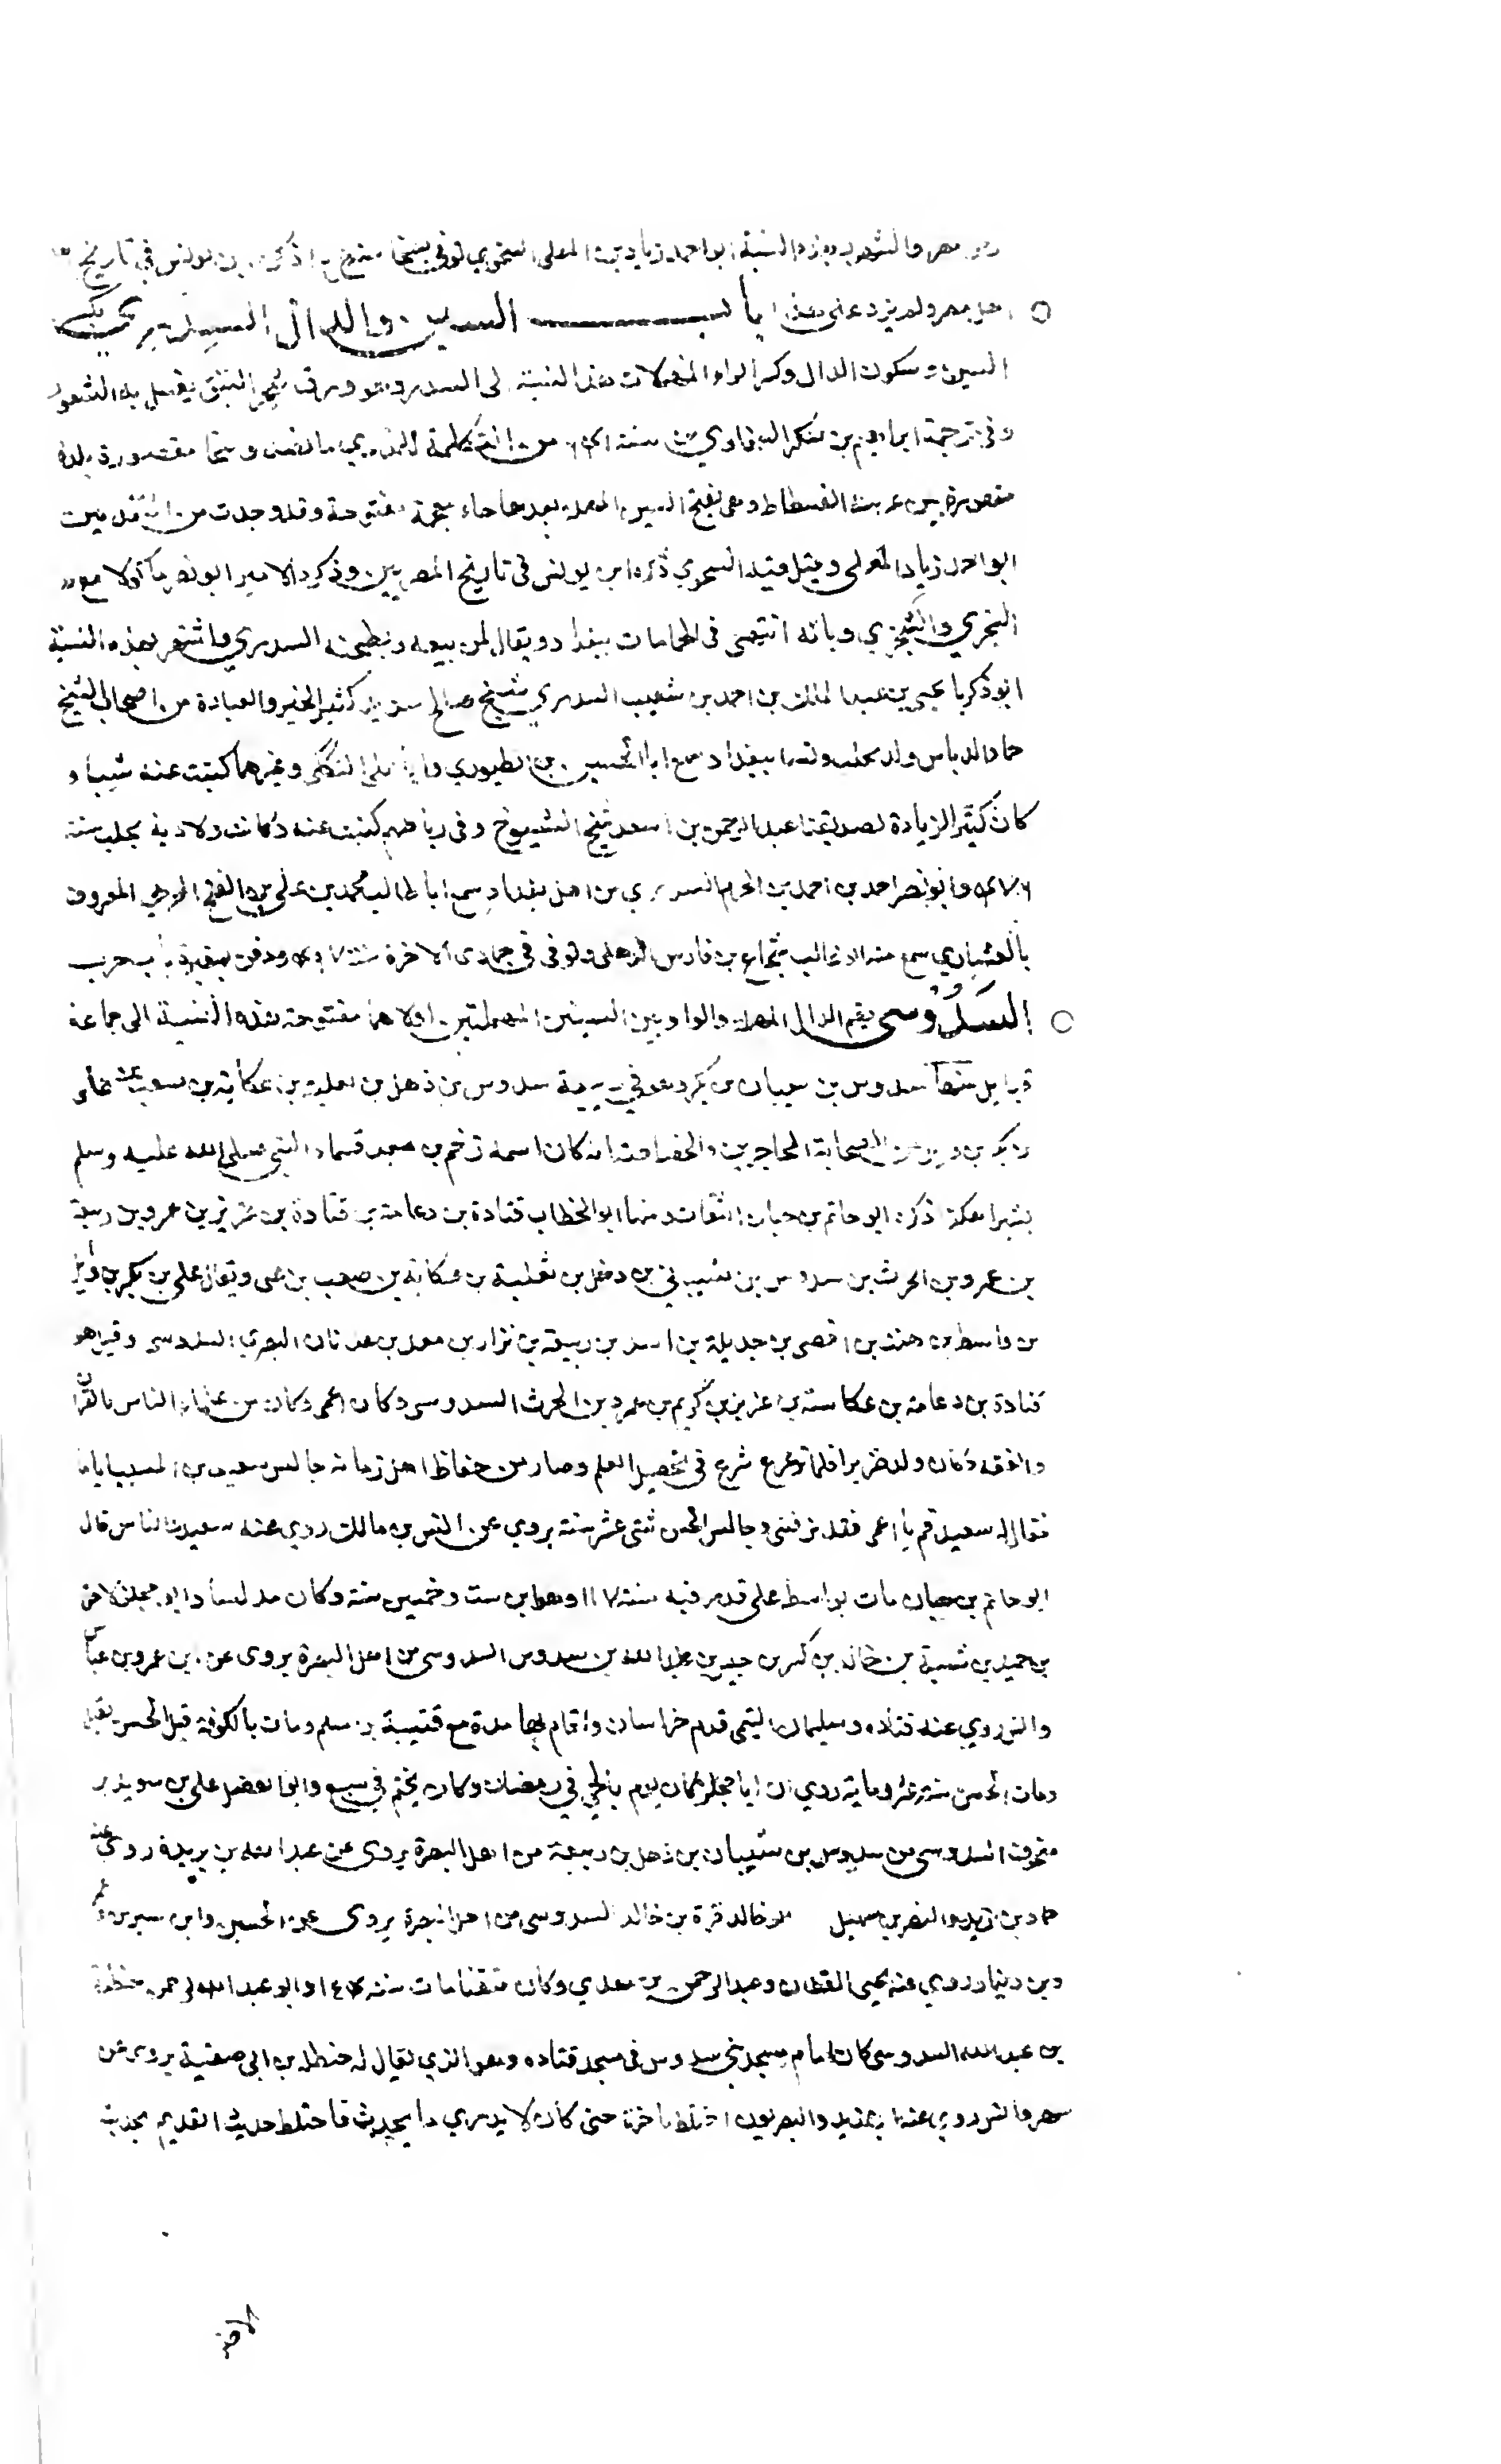 مصر والمشهور بهذه النسبة ابو احمد زياد بن المعلى السخوي توفي بسخا ذكره بن يونس في تاريخ
اهل مصر ولم يزد على هذا باب السين والدال السدري بكسر
السين وسكون الدال وكسر الراء المهملات هذا النسبة الى السدر وهو ورق شجر النبق يغسل به الشعور
وفي ترجمة ابراهيم بن سنة من وسخا مقصورة بلدة
الفسطاط وهي بفتح السين المهملة بعدها خاء معجمة مفتوحة وقد وجدت من المتقدمين
ابو احمد زياد المعلى وقيل فيه السخوي ذكره ابن يونس في تاريخ المصريين وذكره الامير ابو نصر بن ماكولا مع
النجري والشجري وبانه انتهى في الحمامات ببغداد ويقال لمن يبيعه ويطحنه السدري واشتهر بهذه النسبة
ابو زكريا يحيى بن عبد الملك بن احمد بن شعيب السدري شيخ صالح سديد كثير الخير والعبادة من اصحاب الشيخ
حماد الدباس ولد بحلب ونشا ببغداد سمع ابا الحسين بن الطيوري وابا علي التككي وغيرهما كتبت عنه شيئا و
كان كثير الزيارة لصديقنا عبد الرحمن بن اسعد شيخ الشيوخ وفي رباطهم كتبت عنه وكانت ولادته بحلب سنة
وابو نصر احمد بن احمد بن السدري من اهل بغداد سمع ابا طالب محمد بن علي بن الفتح الحربي المعروف
بالعشاري سمع منه ابو غالب شجاع بن فارس الذهلي وتوفي في جمادى الاخرة سنة ودفن بمقبرة باب حرب
السَدُوسي بضم الدال المهملة والواو بين السينين المهملتين اولاهما مفتوحة هذه النسبة الى جماعة
قبايل منها سدوس بن شيبان بن بكر وهو في ربيعة سدوس بن ذهل بن ثعلبة بن عكابة بن صعب بن علي
بن بكر بن وايل من الصحابة المهاجرين ابن الخصاصية انه كان اسمه زخم بن معبد فسماه النبي صلى الله عليه وسلم
بشيرا هكذا ذكره ابو حاتم بن حبان الثقات ومنها ابو الخطاب قتادة بن دعامة بن قتادة بن عزيز بن عمرو بن ربيعة
بن عمرو بن الحرث بن سدوس بن شيبان بن ذهل بن ثعلبة بن عكابة بن صعب بن علي ويقال علي بن بكر بن وايل
بن قاسط بن هنب بن افصى بن جديلة بن اسد بن ربيعة بن نزار بن معد بن عدنان البصري السدوسي وقيل هو
قتادة بن دعامة بن عكاسة بن عزيز بن كريم بن عمرو بن الحرث السدوسي وكان اعمى وكان من علماء الناس بالقران
والفقه وكان ولد ضريرا فلما ترعرع شرع في تحصيل العلم وصار من حفاظ اهل زمانه جالس سعيد بن المسيب اياما
فقال له سعيد قم يا اعمى فقد نزفتني وجالس الحسن ثنتي عشر سنة يروي عن انس بن مالك روى عنه سعيد والناس قال
ابو حاتم بن حبان مات بواسط على قدر فيه سنة ١١٧ وهو ابن ست وخمسين سنة وكان مدلسا وابو مجلز لاحق
بن حميد بن شيبة بن خالد بن كثير بن حبيش بن عبد الله بن سدوس السدوسي من اهل البصرة يروي عن بن عمر وبن عباس
وانس روى عنه قتاده وسليمان التيمي قدم خراسان واقام بها مدة مع قتيبة بن مسلم ومات بالكوفة قبل الحسن بقليل
ومات الحسن سنة عشر وماية روي ان ابا مجلز كان يوم بالحي في رمضان وكان يختم في سبع وابو الفضل علي بن سويد بن
منجوف السدوسي من سدوس بن شيبان بن ذهل بن ربيعة من اهل البصرة يروى عن عبد الله بن بريدة روى عنه
حماد بن زيد والنضر بن شميل ابو خالد قرة بن خالد السدوسي من اهل البصرة يروى عن الحسن وابن سيرين و
وبن دينار روى عنه يحيى القطان وعبد الرحمن بن مهدي وكان متقنا مات سنة وابو عبد الرحمن حنظلة
بن عبد الله السدوسي كان امام مسجد بني سدوس في مسجد قتاده وهو الذي يقال له حنظلة بن ابي صفية يروى عن
شهر وانس روى عنه بن زيد والبصريون اختلط باخرة حتى كان لا يدري ما يحدث فاختلط حديثه القديم بحديثه
الاخير